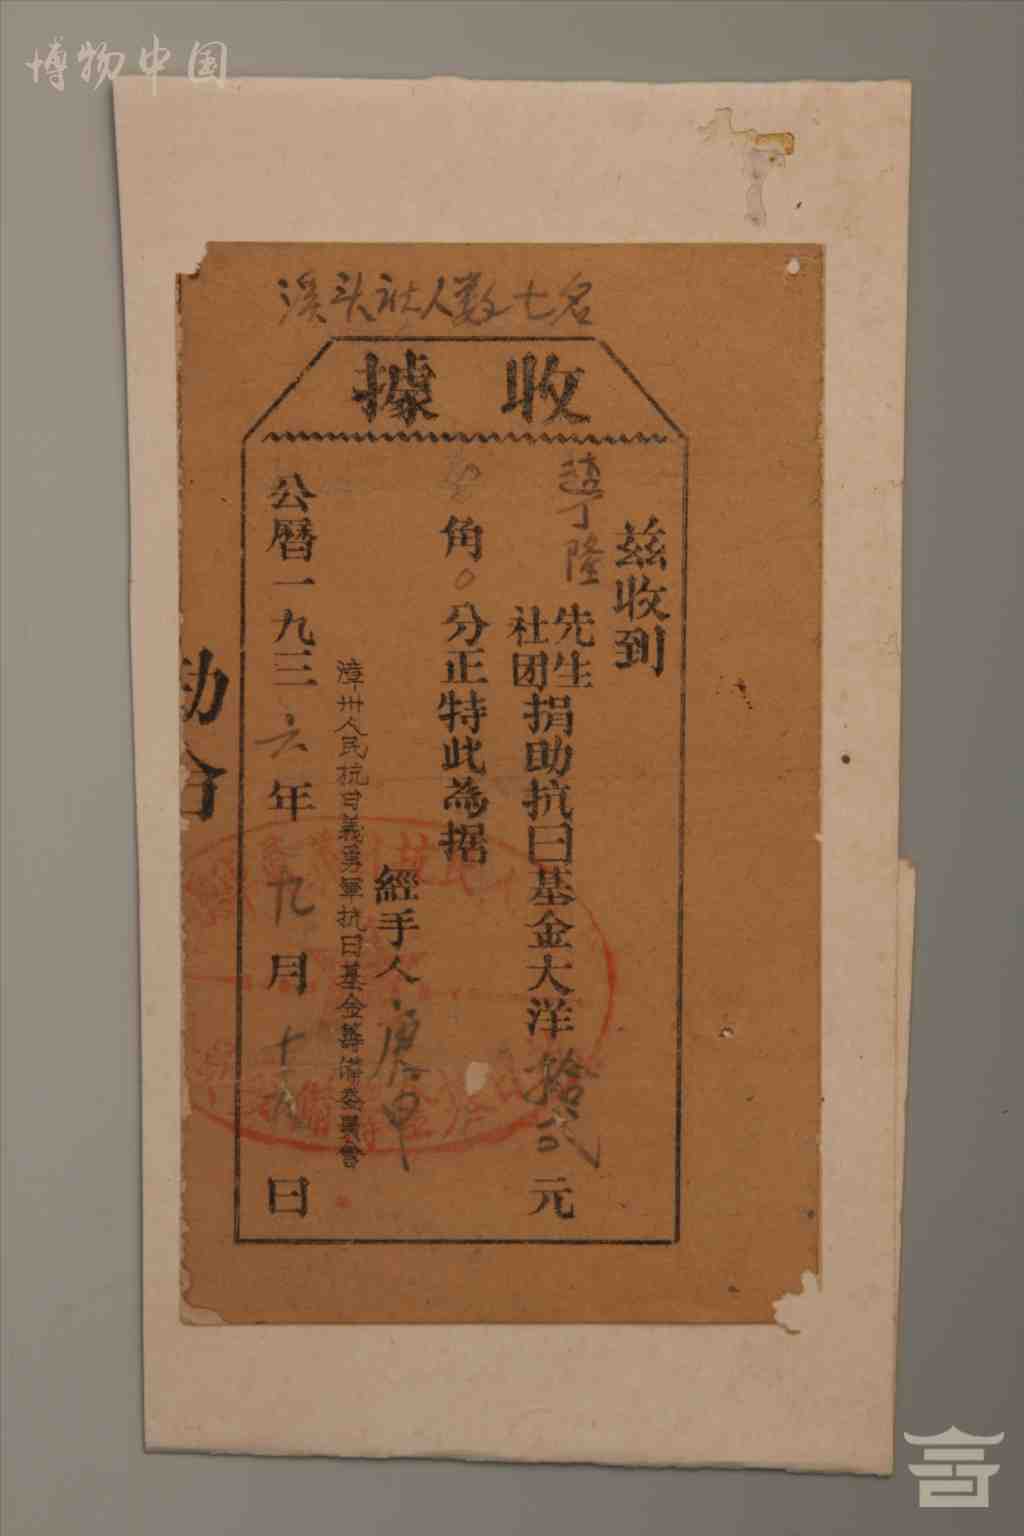 博物中国
溪头社人数七名
收據
兹收到
丁隆 先生 社团 捐助抗日基金大洋拾弍元
角〇分正特此為据
經手人 庚申
漳州人民抗日義勇軍抗日基金籌備委員會
公曆一九三六年九月十九日
勋合